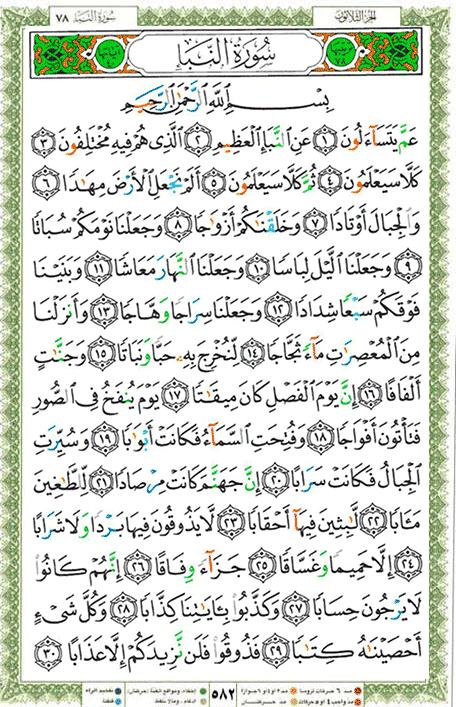 الجزء الثلاثون
سورة النبإ ٧٨
سُورَةُ النَّبَإِ
بِسْمِ ٱللَّهِ ٱلرَّحْمَٰنِ ٱلرَّحِيمِ
عَمَّ يَتَسَآءَلُونَ ١ عَنِ ٱلنَّبَإِ ٱلْعَظِيمِ ٢ ٱلَّذِى هُمْ فِيهِ مُخْتَلِفُونَ ٣
كَلَّا سَيَعْلَمُونَ ٤ ثُمَّ كَلَّا سَيَعْلَمُونَ ٥ أَلَمْ نَجْعَلِ ٱلْأَرْضَ مِهَٰدًا ٦
وَٱلْجِبَالَ أَوْتَادًا ٧ وَخَلَقْنَٰكُمْ أَزْوَٰجًا ٨ وَجَعَلْنَا نَوْمَكُمْ سُبَاتًا
٩ وَجَعَلْنَا ٱلَّيْلَ لِبَاسًا ١٠ وَجَعَلْنَا ٱلنَّهَارَ مَعَاشًا ١١ وَبَنَيْنَا
فَوْقَكُمْ سَبْعًا شِدَادًا ١٢ وَجَعَلْنَا سِرَاجًا وَهَّاجًا ١٣ وَأَنزَلْنَا
مِنَ ٱلْمُعْصِرَٰتِ مَآءً ثَجَّاجًا ١٤ لِّنُخْرِجَ بِهِۦ حَبًّا وَنَبَاتًا ١٥ وَجَنَّٰتٍ
أَلْفَافًا ١٦ إِنَّ يَوْمَ ٱلْفَصْلِ كَانَ مِيقَٰتًا ١٧ يَوْمَ يُنفَخُ فِى ٱلصُّورِ
فَتَأْتُونَ أَفْوَاجًا ١٨ وَفُتِحَتِ ٱلسَّمَآءُ فَكَانَتْ أَبْوَٰبًا ١٩ وَسُيِّرَتِ
ٱلْجِبَالُ فَكَانَتْ سَرَابًا ٢٠ إِنَّ جَهَنَّمَ كَانَتْ مِرْصَادًا ٢١ لِّلطَّٰغِينَ
مَـَٔابًا ٢٢ لَّٰبِثِينَ فِيهَآ أَحْقَابًا ٢٣ لَّا يَذُوقُونَ فِيهَا بَرْدًا وَلَا شَرَابًا
٢٤ إِلَّا حَمِيمًا وَغَسَّاقًا ٢٥ جَزَآءً وِفَاقًا ٢٦ إِنَّهُمْ كَانُوا۟
لَا يَرْجُونَ حِسَابًا ٢٧ وَكَذَّبُوا۟ بِـَٔايَٰتِنَا كِذَّابًا ٢٨ وَكُلَّ شَىْءٍ
أَحْصَيْنَٰهُ كِتَٰبًا ٢٩ فَذُوقُوا۟ فَلَن نَّزِيدَكُمْ إِلَّا عَذَابًا ٣٠
٥٨٢